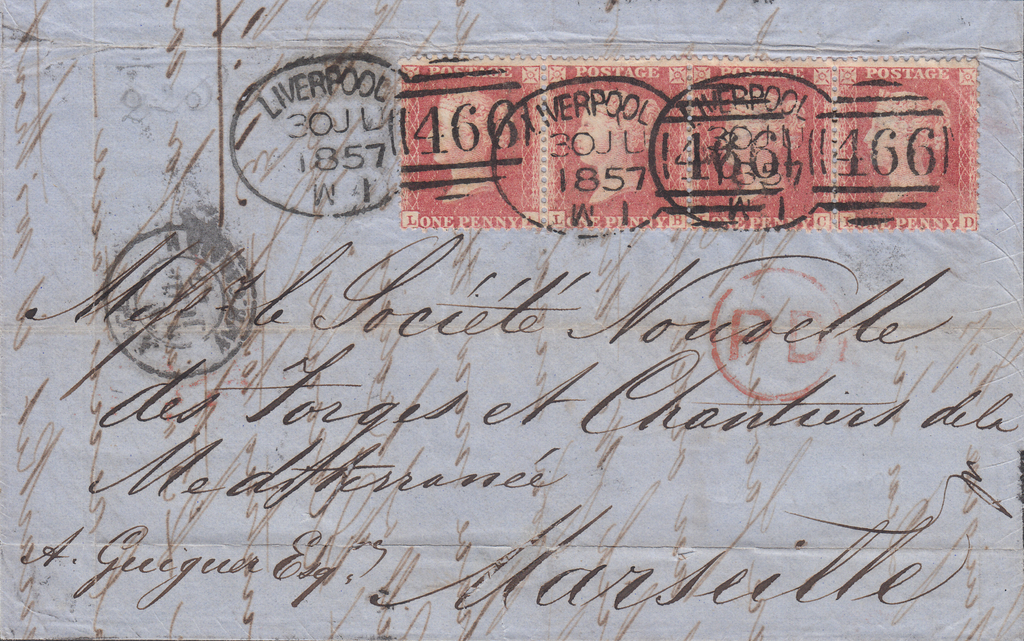 LIVERPOOL
30 JU
1857
W 1
466
LIVERPOOL
30 JU
1857
W 1
466
LIVERPOOL
30 JU
1857
W 1
466
POSTAGE POSTAGE POSTAGE POSTAGE
L ONE PENNY
L ONE PENNY B
ONE PENNY C
ONE PENNY D
P D
la Société Nouvelle
des Forges et Chantiers de la
Mediterranée
A. Guigner Esqre
Marseille